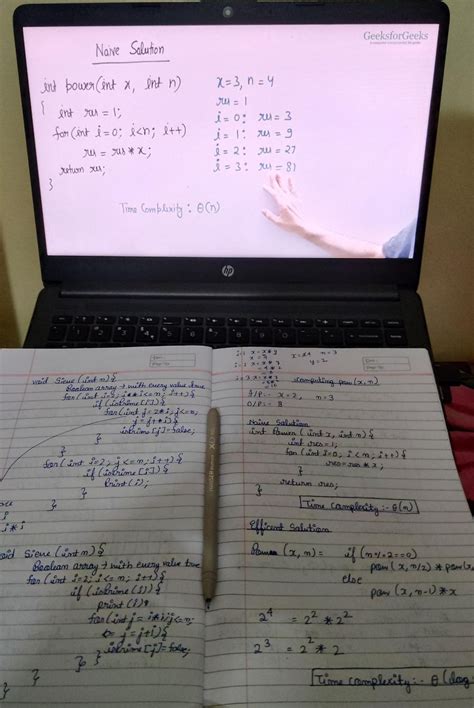 GeeksforGeeks
Naive Solution
int power(int x, int n)
{
int res = 1;
for(int i=0; i<n; i++)
res = res * x;
return res;
}
Time Complexity : θ(n)
x=3, n=4
res = 1
i=0: res=3
i=1: res=9
i=2: res=27
i=3: res=81
hp
void Sieve (int n) {
Boolean array → with every value true
for (int i=2; i*i<=n; i++) {
if (isPrime [i]) {
for (int j=2*i; j<=n;
j=j+i) {
isPrime[j]=false;
}
}
}
for (int i=2; i<=n; i++) {
if (isPrime[i])
Print(i);
}
}
i*i
void Sieve (int n) {
Boolean array → with every value true
for (int i=2; i<=n; i++) {
if (isPrime(i)) {
print (i);
for(int j=i*i; j<=n;
j=j+i) {
isPrime[j]=false;
} }
}
}
n=3
y=2
Computing pow(x,n)
I/P:- x=2, n=3
O/P:- 8
Naive Solution
int Power (int x, int n) {
int res=1;
for (int i=0; i<n; i++) {
res=res*x;
}
return res;
}
Time complexity:- θ(n)
Efficent Solution
Power (x,n)= if(n%2==0)
pow(x, n/2) * pow(x
else
pow(x, n-1)*x
2⁴ = 2² * 2²
2³ = 2² * 2
Time complexity:- θ(log